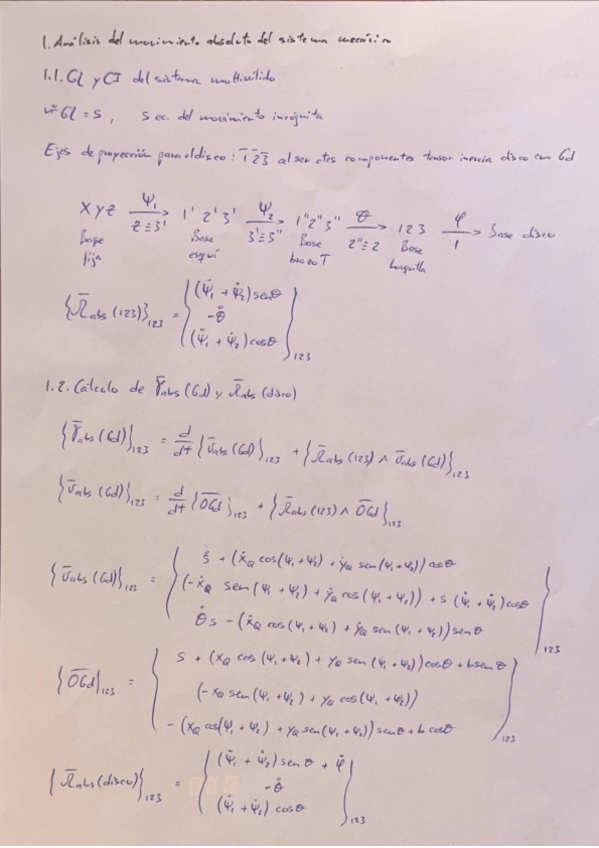 1. Análisis del movimiento absoluto del sistema mecánico
1.1. GL y CI del sistema multisólido
nº GL = 5 , 5 ec. del movimiento incógnita
Ejes de proyección para el disco: 1̄ 2̄ 3̄ al ser ctes componentes tensor inercia disco en Gd
XYZ —Ψ₁ / Z≡3'→ 1' 2' 3' —Ψ₂ / 3'≡3"→ 1" 2" 3" —θ / 2"≡2→ 123 —φ / 1→ Base disco
Base fija Base esquí Base brazo T Base horquilla
{Ω̄abs (123)}₁₂₃ = { (Ψ̇₁ + Ψ̇₂) senθ
-θ̇
(Ψ̇₁ + Ψ̇₂) cosθ }₁₂₃
1.2. Cálculo de γ̄abs (Gd) y Ω̄abs (disco)
{γ̄abs (Gd)}₁₂₃ = d/dt {v̄abs (Gd)}₁₂₃ + {Ω̄abs (123) ∧ v̄abs (Gd)}₁₂₃
{v̄abs (Gd)}₁₂₃ = d/dt {OGd}₁₂₃ + {Ω̄abs (123) ∧ OGd}₁₂₃
{v̄abs (Gd)}₁₂₃ = { ṡ + (ẋQ cos(Ψ₁+Ψ₂) + ẏQ sen(Ψ₁+Ψ₂)) cosθ
(-ẋQ sen(Ψ₁+Ψ₂) + ẏQ cos(Ψ₁+Ψ₂)) + s (Ψ̇₁+Ψ̇₂) cosθ
θ̇ s - (ẋQ cos(Ψ₁+Ψ₂) + ẏQ sen(Ψ₁+Ψ₂)) senθ }₁₂₃
{OGd}₁₂₃ = { s + (xQ cos(Ψ₁+Ψ₂) + yQ sen(Ψ₁+Ψ₂)) cosθ + b senθ
(-xQ sen(Ψ₁+Ψ₂) + yQ cos(Ψ₁+Ψ₂))
-(xQ cos(Ψ₁+Ψ₂) + yQ sen(Ψ₁+Ψ₂)) senθ + b cosθ }₁₂₃
{Ω̄abs (disco)}₁₂₃ = { (Ψ̇₁ + Ψ̇₂) senθ + φ̇
-θ̇
(Ψ̇₁ + Ψ̇₂) cosθ }₁₂₃